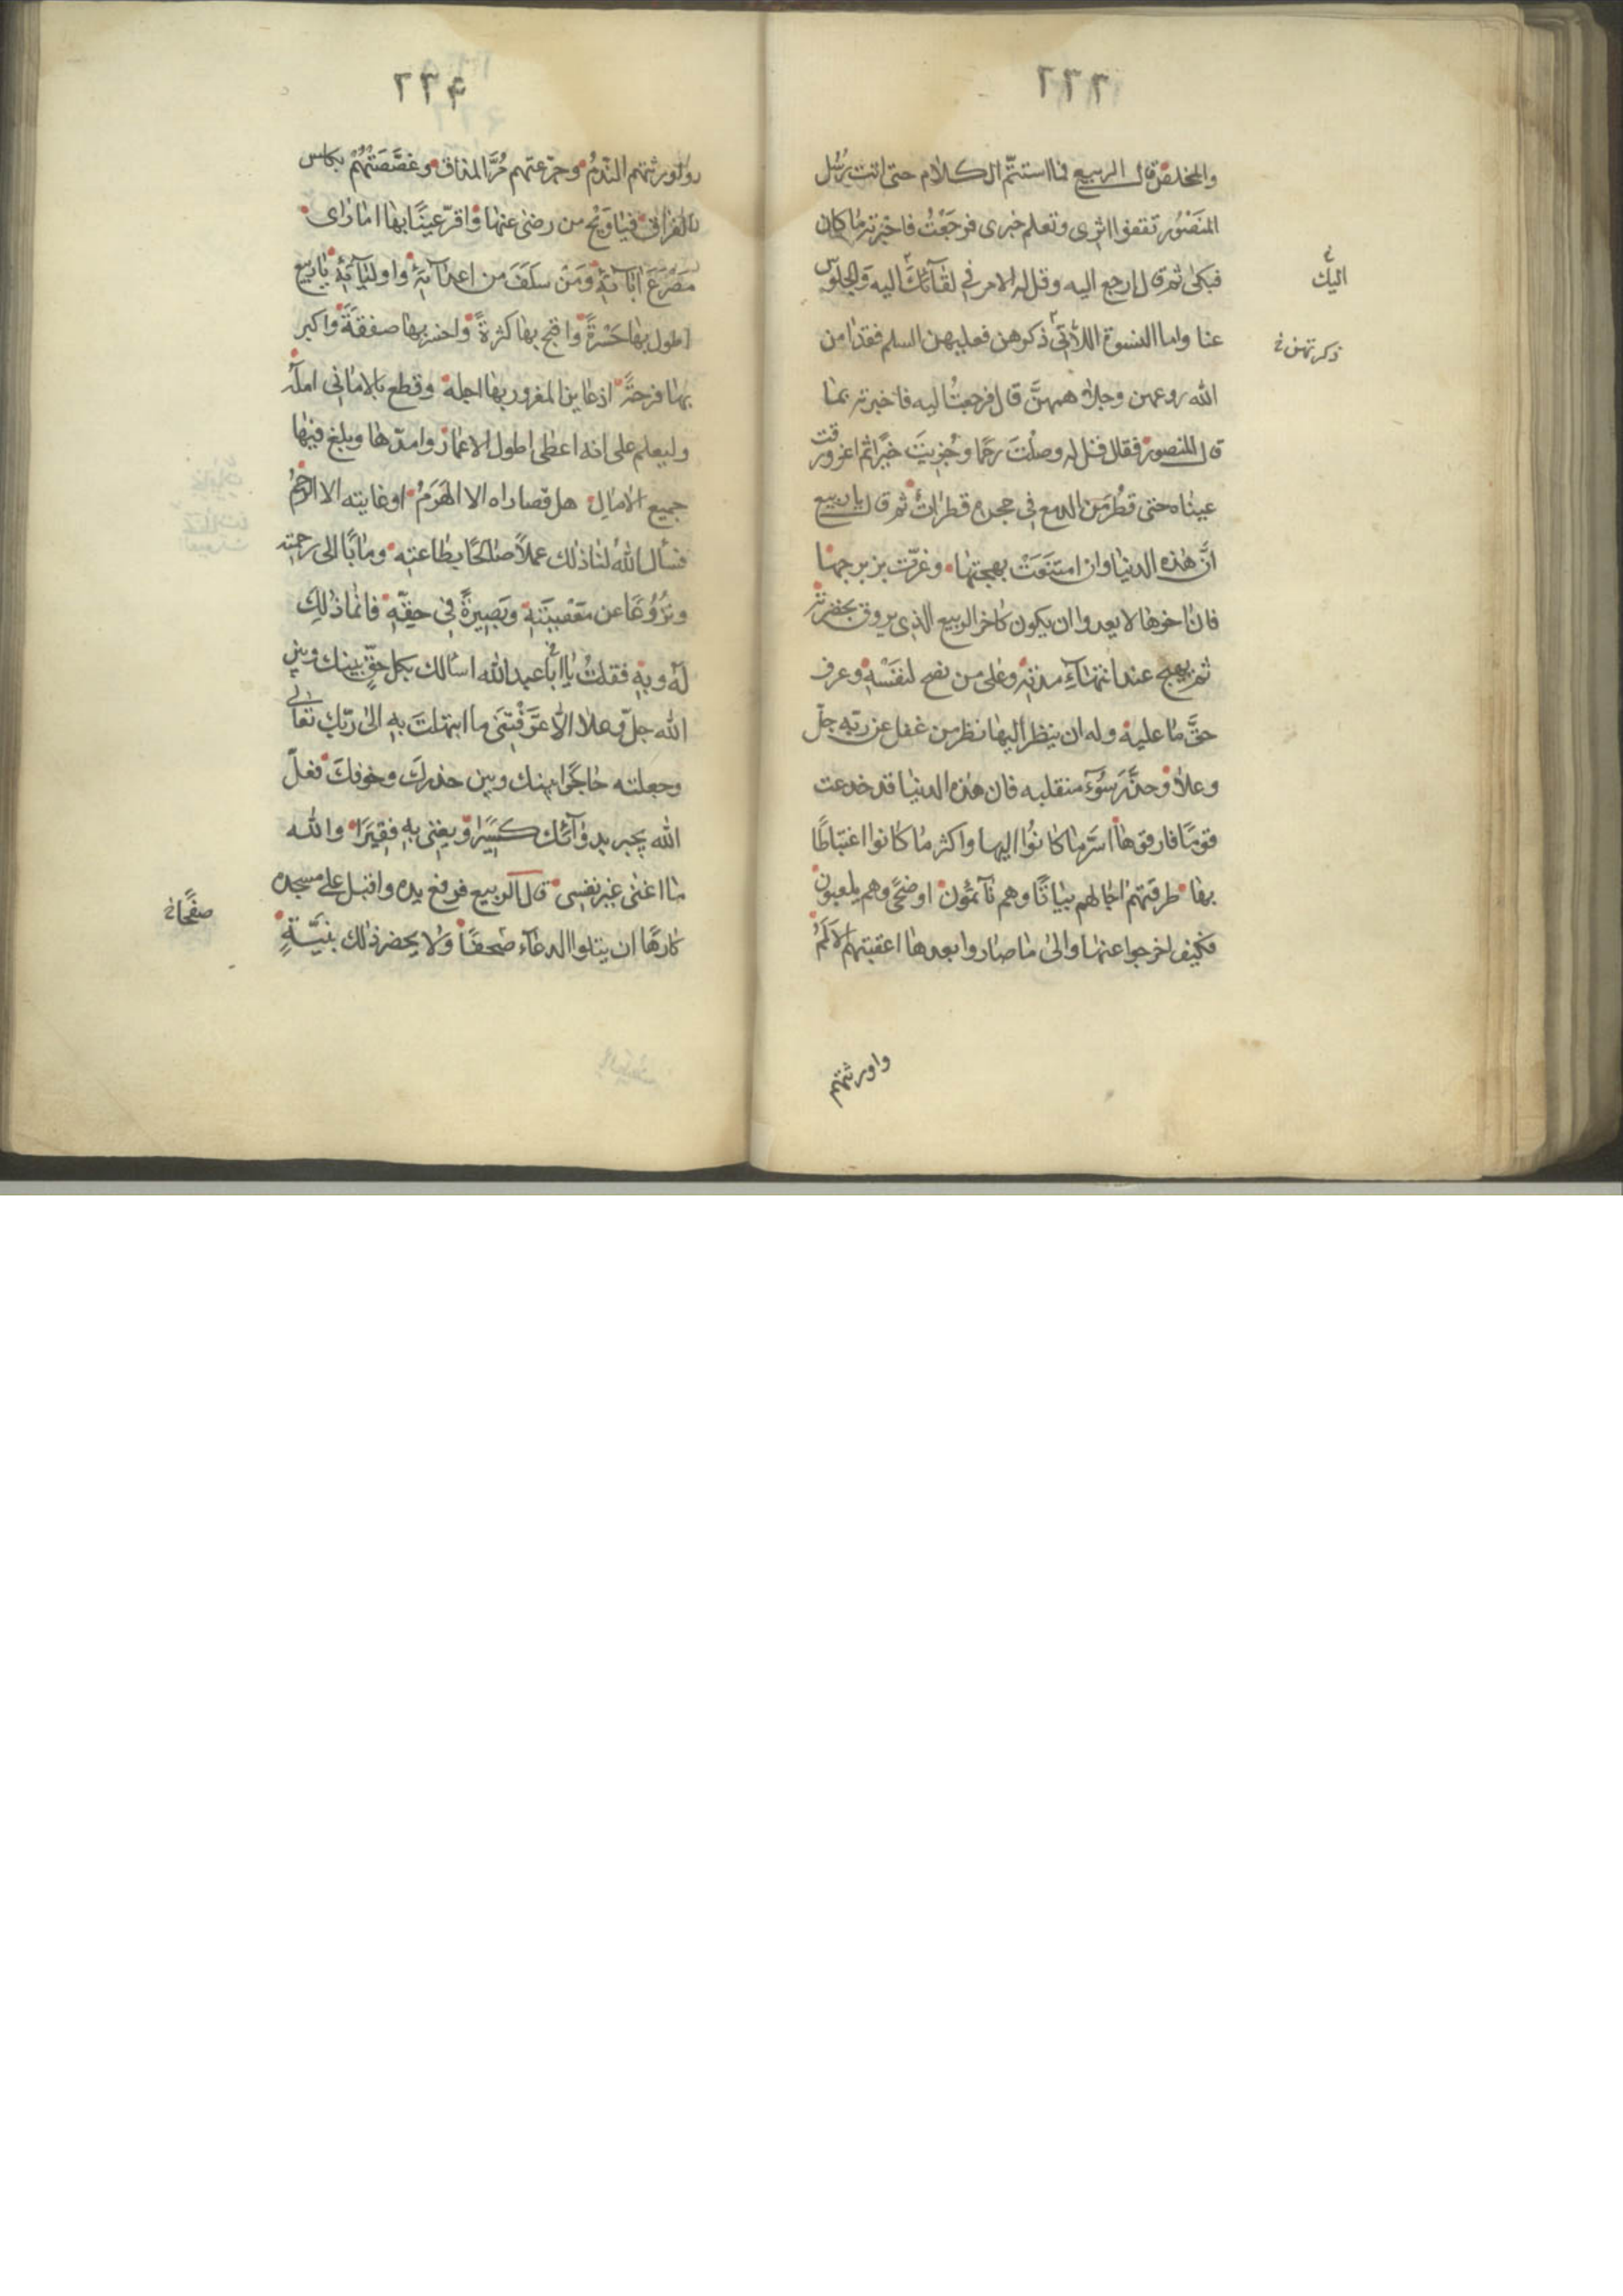 ٢٢٦
والمخلص قال الربيع فما استتم الكلام حتى اتت رُسُل
المنصُور تقفوا اثرى وتعلم خبرى فرجَعْتُ فاخبرته مٰا كان
فبكى ثم قال ارجع اليه وقل له الامر في لقآئك اليه وَالجلوس
عنا واما النسوة اللّاتى ذكرهن فعليهن السلم فقد امن
الله روعهن وجلا همهنَّ قال فرجعتُ اليه فاخبرته بمٰا
قال المنصور فقال قل له وصلْتَ رَحمًا وجُزيتَ خيرًا ثم اغرورقت
عينٰاه حتى قطر من الدمع في حجره قطرات ثم قال يا ربيع
انَّ هٰذه الدنيٰا وان امتَتَعتْ ببهجتهٰا وغرّت بزبرجهٰا
فان اٰخرهٰا لا يعدوا ان يكون كاخر الربيع الذى يروق بخضرته
ثم يهيج عند انتهٰآءِ مدته وعلى من نصح لنفسْهِ وعرف
حقَّ مٰا عليه وله ان ينظر اليهٰا نظر من غفل عن ربّهِ جلّ
وعلاٰ وحذّر سُوۤءَ منقلبه فان هٰذه الدنيٰا قد خدعت
قومًا فارقوهٰا اسَرّ مٰا كانُوا اليهٰا واكثر مٰا كانوا اغتبٰاطًا
بهٰا طرقتهم اٰجٰالهم بيٰاتًا وهم نآئمُون او ضحًى وهم يلعبون
فكيف اخرجوا عنهٰا والىٰ مٰا صٰاروا بعدهٰا اعقبتهم الاَلَمَ
واورثتهم
اليك خ
ذكرتهن خ
٢٢٧
واورثتهم النّدمُ وجرّعتهم مُرَّ المذاق وغصَّصَتْهُمْ بكاس
الفراق فيٰا وَيْح من رضى عنهٰا واقرّ عينًا بهٰا امٰا رٰاى
مَصْرَعَ اٰبٰآئه وَمَن سَلَفَ من اعدآئه واوليٰآئه يٰا ربيع
اطول بهٰا حَسْرةً واقبح بهٰا كثرةً واخسر بهٰا صفقةً واكبر
بهٰا فرحةً اذ عٰاين المغرور بهٰا اجله وقطع بالامٰانى امله
وليعلم على انه اعطى اطول الاعمٰار وامدّهٰا وبلغ فيهٰا
جميع الاٰمٰالِ هل قصاراه الا الهَرَمُ او غايته الا الوخم
فنسأل الله لنا ذلك عملاً صٰالحًا بطٰاعته ومٰابًا الى رحمته
ونزُوعًا عن معْصِيَتهِ وبَصيرةً في حقّهِ فانمٰا ذٰلِكَ
لَهُ وبهِ فقلتُ يٰا ابٰا عبد الله اسألك بكل حقٍّ بينك وبين
الله جلّ وعلا الاّ عَرَّفْتَنى ما ابتهلتَ بهِ الىٰ ربّك تعالى
وجعلته حٰاجزًا بينك وبين حذركَ وخوفكَ فعلّ
الله يجبر بدوٰآئك كسيرًا ويغنى بهِ فقيرًا والله
مٰا اعنى غير نفسى قال الربيع فرفع يده واقبل على مسجده
كارهًا ان يتلوا الدعٰآء صُحفًا وَلا يحضر ذٰلك بنيَّةٍ
صفحًا خ